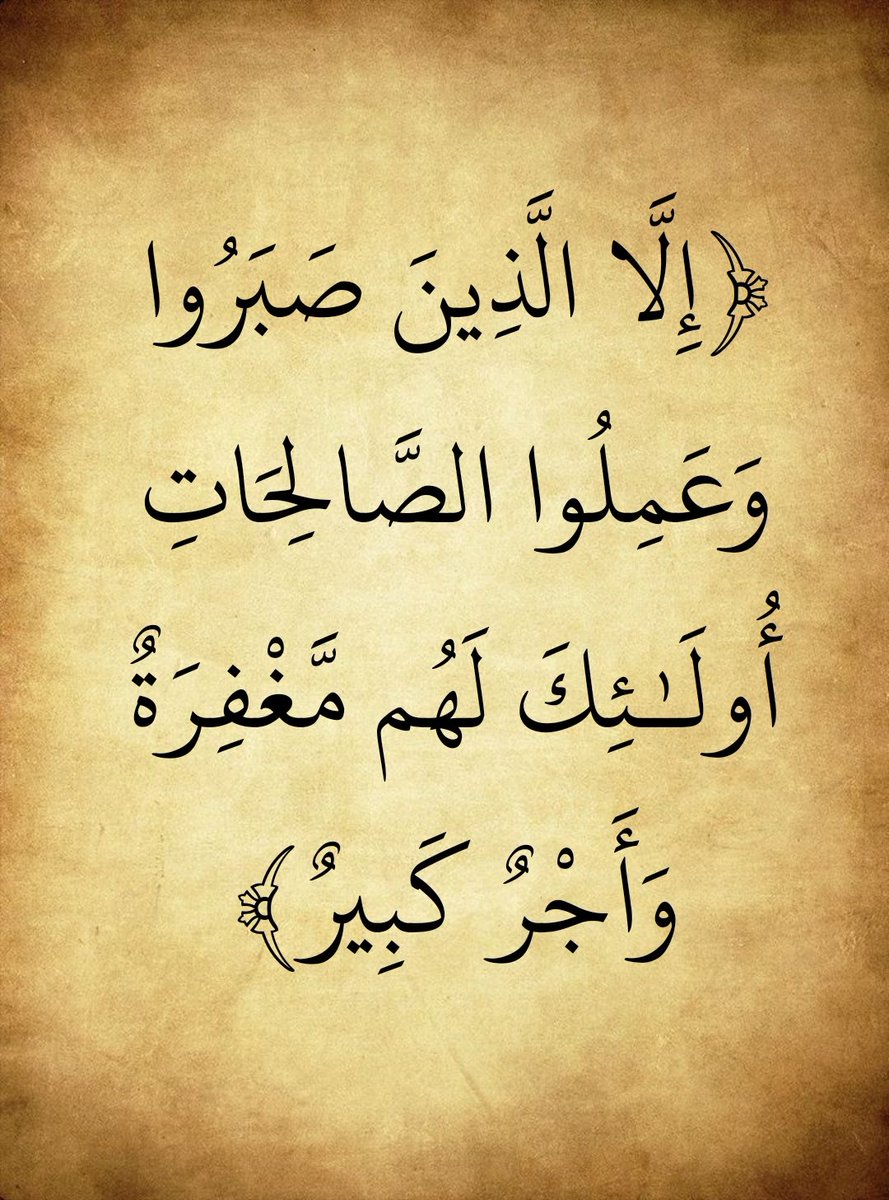 ﴿إِلَّا الَّذِينَ صَبَرُوا
وَعَمِلُوا الصَّالِحَاتِ
أُولَـٰئِكَ لَهُم مَّغْفِرَةٌ
وَأَجْرٌ كَبِيرٌ﴾